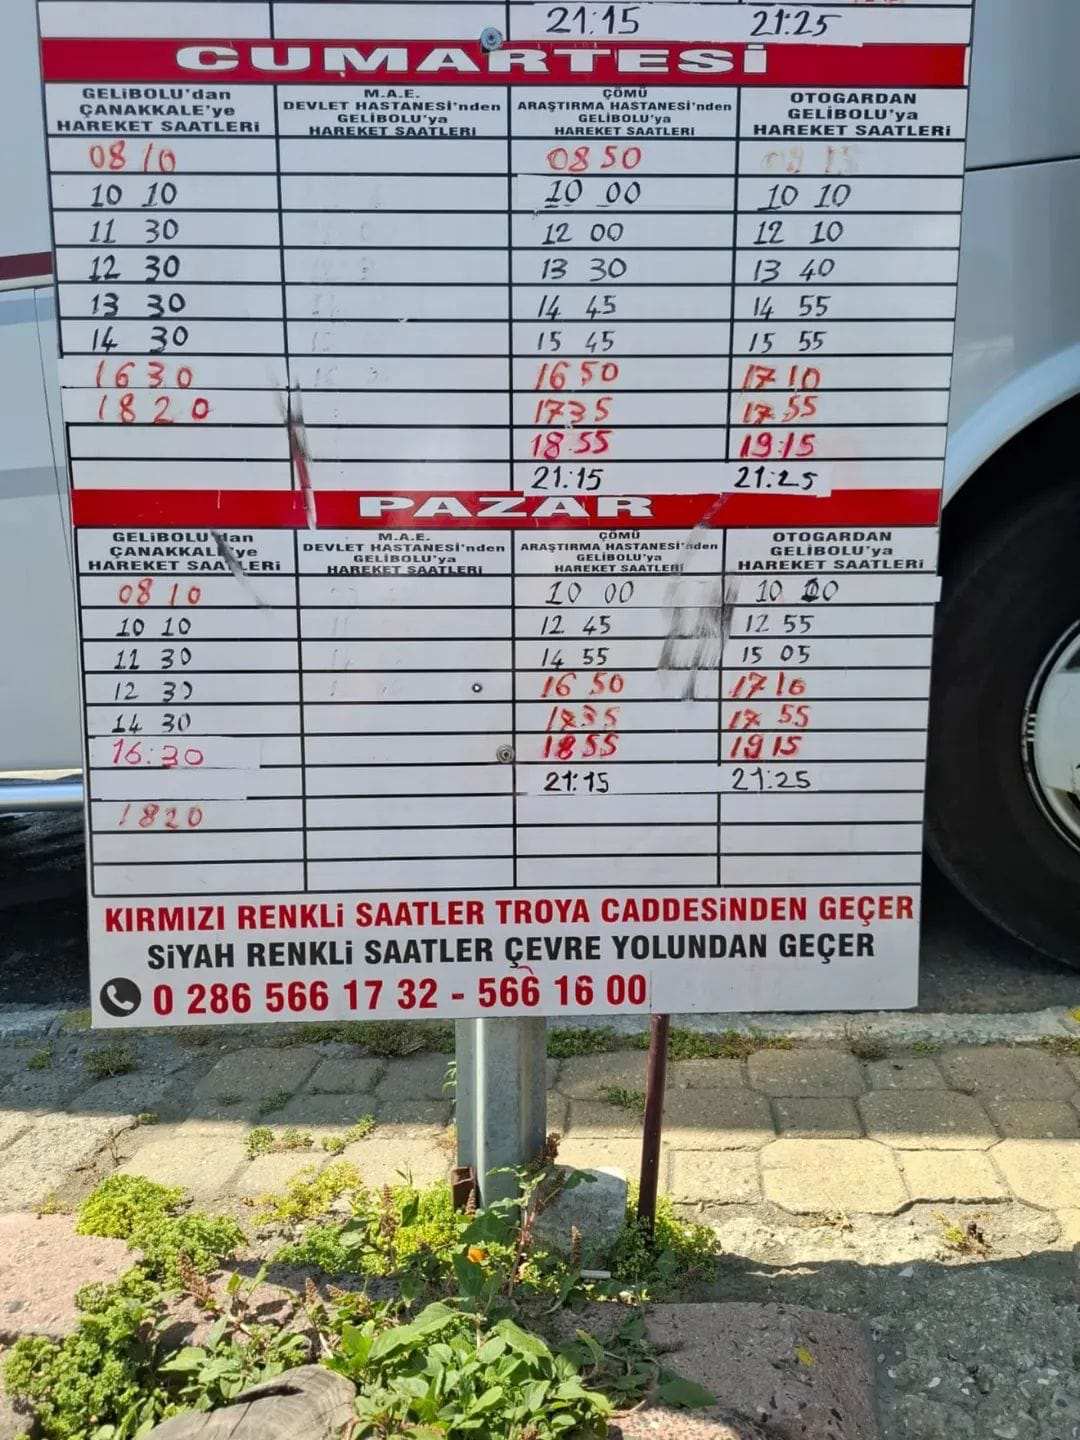 21:15 21:25
CUMARTESİ
GELİBOLU'dan ÇANAKKALE'ye HAREKET SAATLERİ
M.A.E. DEVLET HASTANESİ'nden GELİBOLU'ya HAREKET SAATLERİ
ÇÖMÜ ARAŞTIRMA HASTANESİ'nden GELİBOLU'ya HAREKET SAATLERİ
OTOGARDAN GELİBOLU'ya HAREKET SAATLERİ
08 10 08 50
10 10 10 00 10 10
11 30 12 00 12 10
12 30 13 30 13 40
13 30 14 45 14 55
14 30 15 45 15 55
16 30 16 50 17 10
18 20 17 35 17 55
18 55 19 15
21:15 21:25
PAZAR
GELİBOLU'dan ÇANAKKALE'ye HAREKET SAATLERİ
M.A.E. DEVLET HASTANESİ'nden GELİBOLU'ya HAREKET SAATLERİ
ÇÖMÜ ARAŞTIRMA HASTANESİ'nden GELİBOLU'ya HAREKET SAATLERİ
OTOGARDAN GELİBOLU'ya HAREKET SAATLERİ
08 10 10 00 10
10 10 12 45 12 55
11 30 14 55 15 05
12 30 16 50 17 10
14 30 17 35 17 55
16:30 18 55 19 15
21:15 21:25
18 20
KIRMIZI RENKLİ SAATLER TROYA CADDESİNDEN GEÇER
SİYAH RENKLİ SAATLER ÇEVRE YOLUNDAN GEÇER
0 286 566 17 32 - 566 16 00